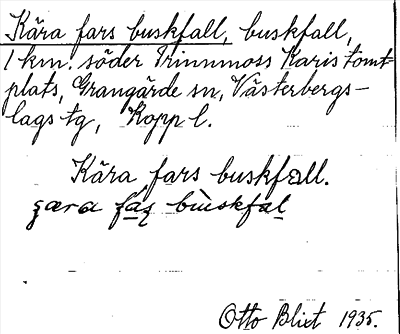 Kära fars buskfall, buskfall,
1 km. söder Trinnmoss Karis tomt-
plats, Grangärde sn, Västerbergs-
lags tg, Kopp l.
Kära fars buskfall.
Otto Blixt 1935.